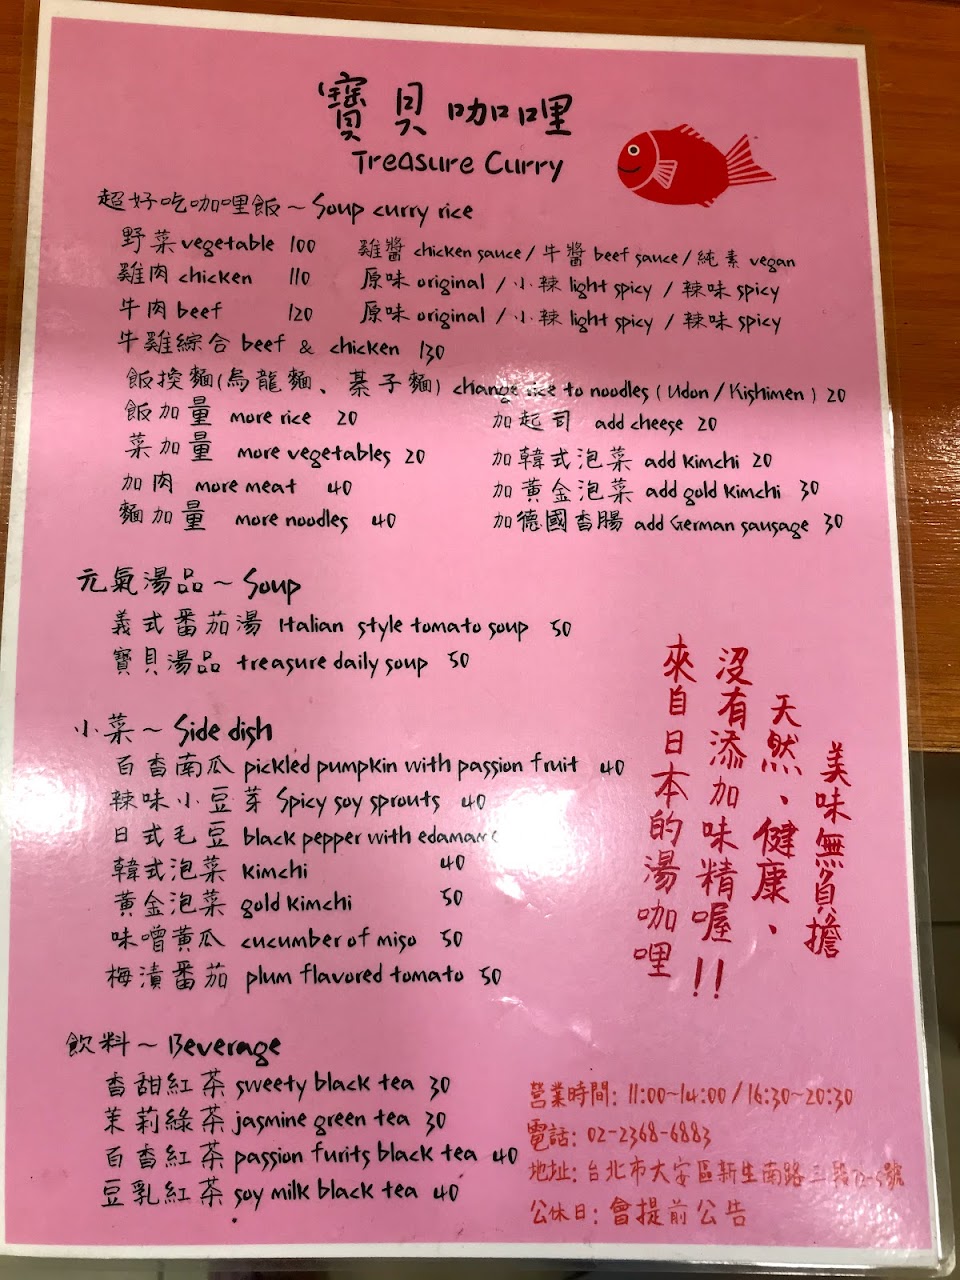 寶貝咖哩
Treasure Curry
超好吃咖哩飯~ Soup curry rice
野菜 vegetable 100 雞醬 chicken sauce / 牛醬 beef sauce / 純素 vegan
雞肉 chicken 110 原味 original / 小辣 light spicy / 辣味 spicy
牛肉 beef 120 原味 original / 小辣 light spicy / 辣味 spicy
牛雞綜合 beef & chicken 130
飯換麵(烏龍麵、棊子麵) change rice to noodles (Udon / Kishimen) 20
飯加量 more rice 20 加起司 add cheese 20
菜加量 more vegetables 20 加韓式泡菜 add Kimchi 20
加肉 more meat 40 加黃金泡菜 add gold Kimchi 30
麵加量 more noodles 40 加德國香腸 add German sausage 30
元氣湯品~ Soup
義式番茄湯 Italian style tomato soup 50
寶貝湯品 treasure daily soup 50
小菜~ Side dish
百香南瓜 pickled pumpkin with passion fruit 40
辣味小豆芽 Spicy soy sprouts 40
日式毛豆 black pepper with
韓式泡菜 kimchi 40
黃金泡菜 gold kimchi 50
味噌黃瓜 cucumber of miso 50
梅漬番茄 plum flavored tomato 50
美味無負擔
天然、健康、
沒有添加味精喔!!
來自日本的湯咖哩
飲料~ Beverage
香甜紅茶 sweety black tea 30
茉莉綠茶 jasmine green tea 30
百香紅茶 passion furits black tea 40
豆乳紅茶 soy milk black tea 40
營業時間: 11:00~14:00 / 16:30~20:30
電話: 02-2368-6883
地址: 台北市大安區新生南路三段72-5號
公休日: 會提前公告